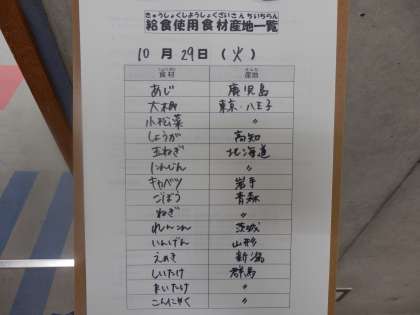 きゅうしょくしようしょくざいさんちいちらん
給食使用食材産地一覧
10月29日(火)
食材 産地
あじ 鹿児島
大根 東京・八王子
小松菜 〃
しょうが 高知
玉ねぎ 北海道
にんじん 〃
キャベツ 岩手
ごぼう 青森
ねぎ 〃
れんこん 茨城
いんげん 山形
えのき 新潟
しいたけ 群馬
まいたけ 〃
こんにゃく 〃